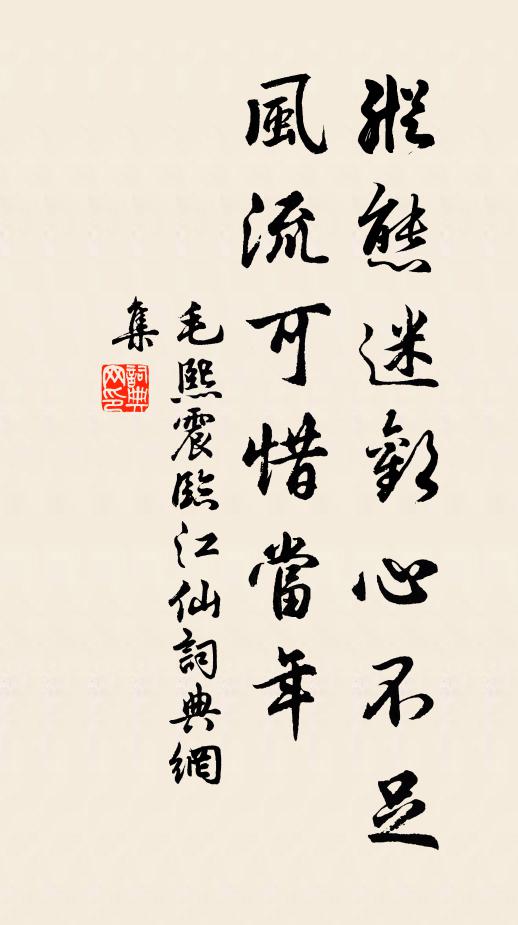 縱態迷歡心不足
風流可惜當年
毛熙震臨江仙詞典網
集
詞典网印